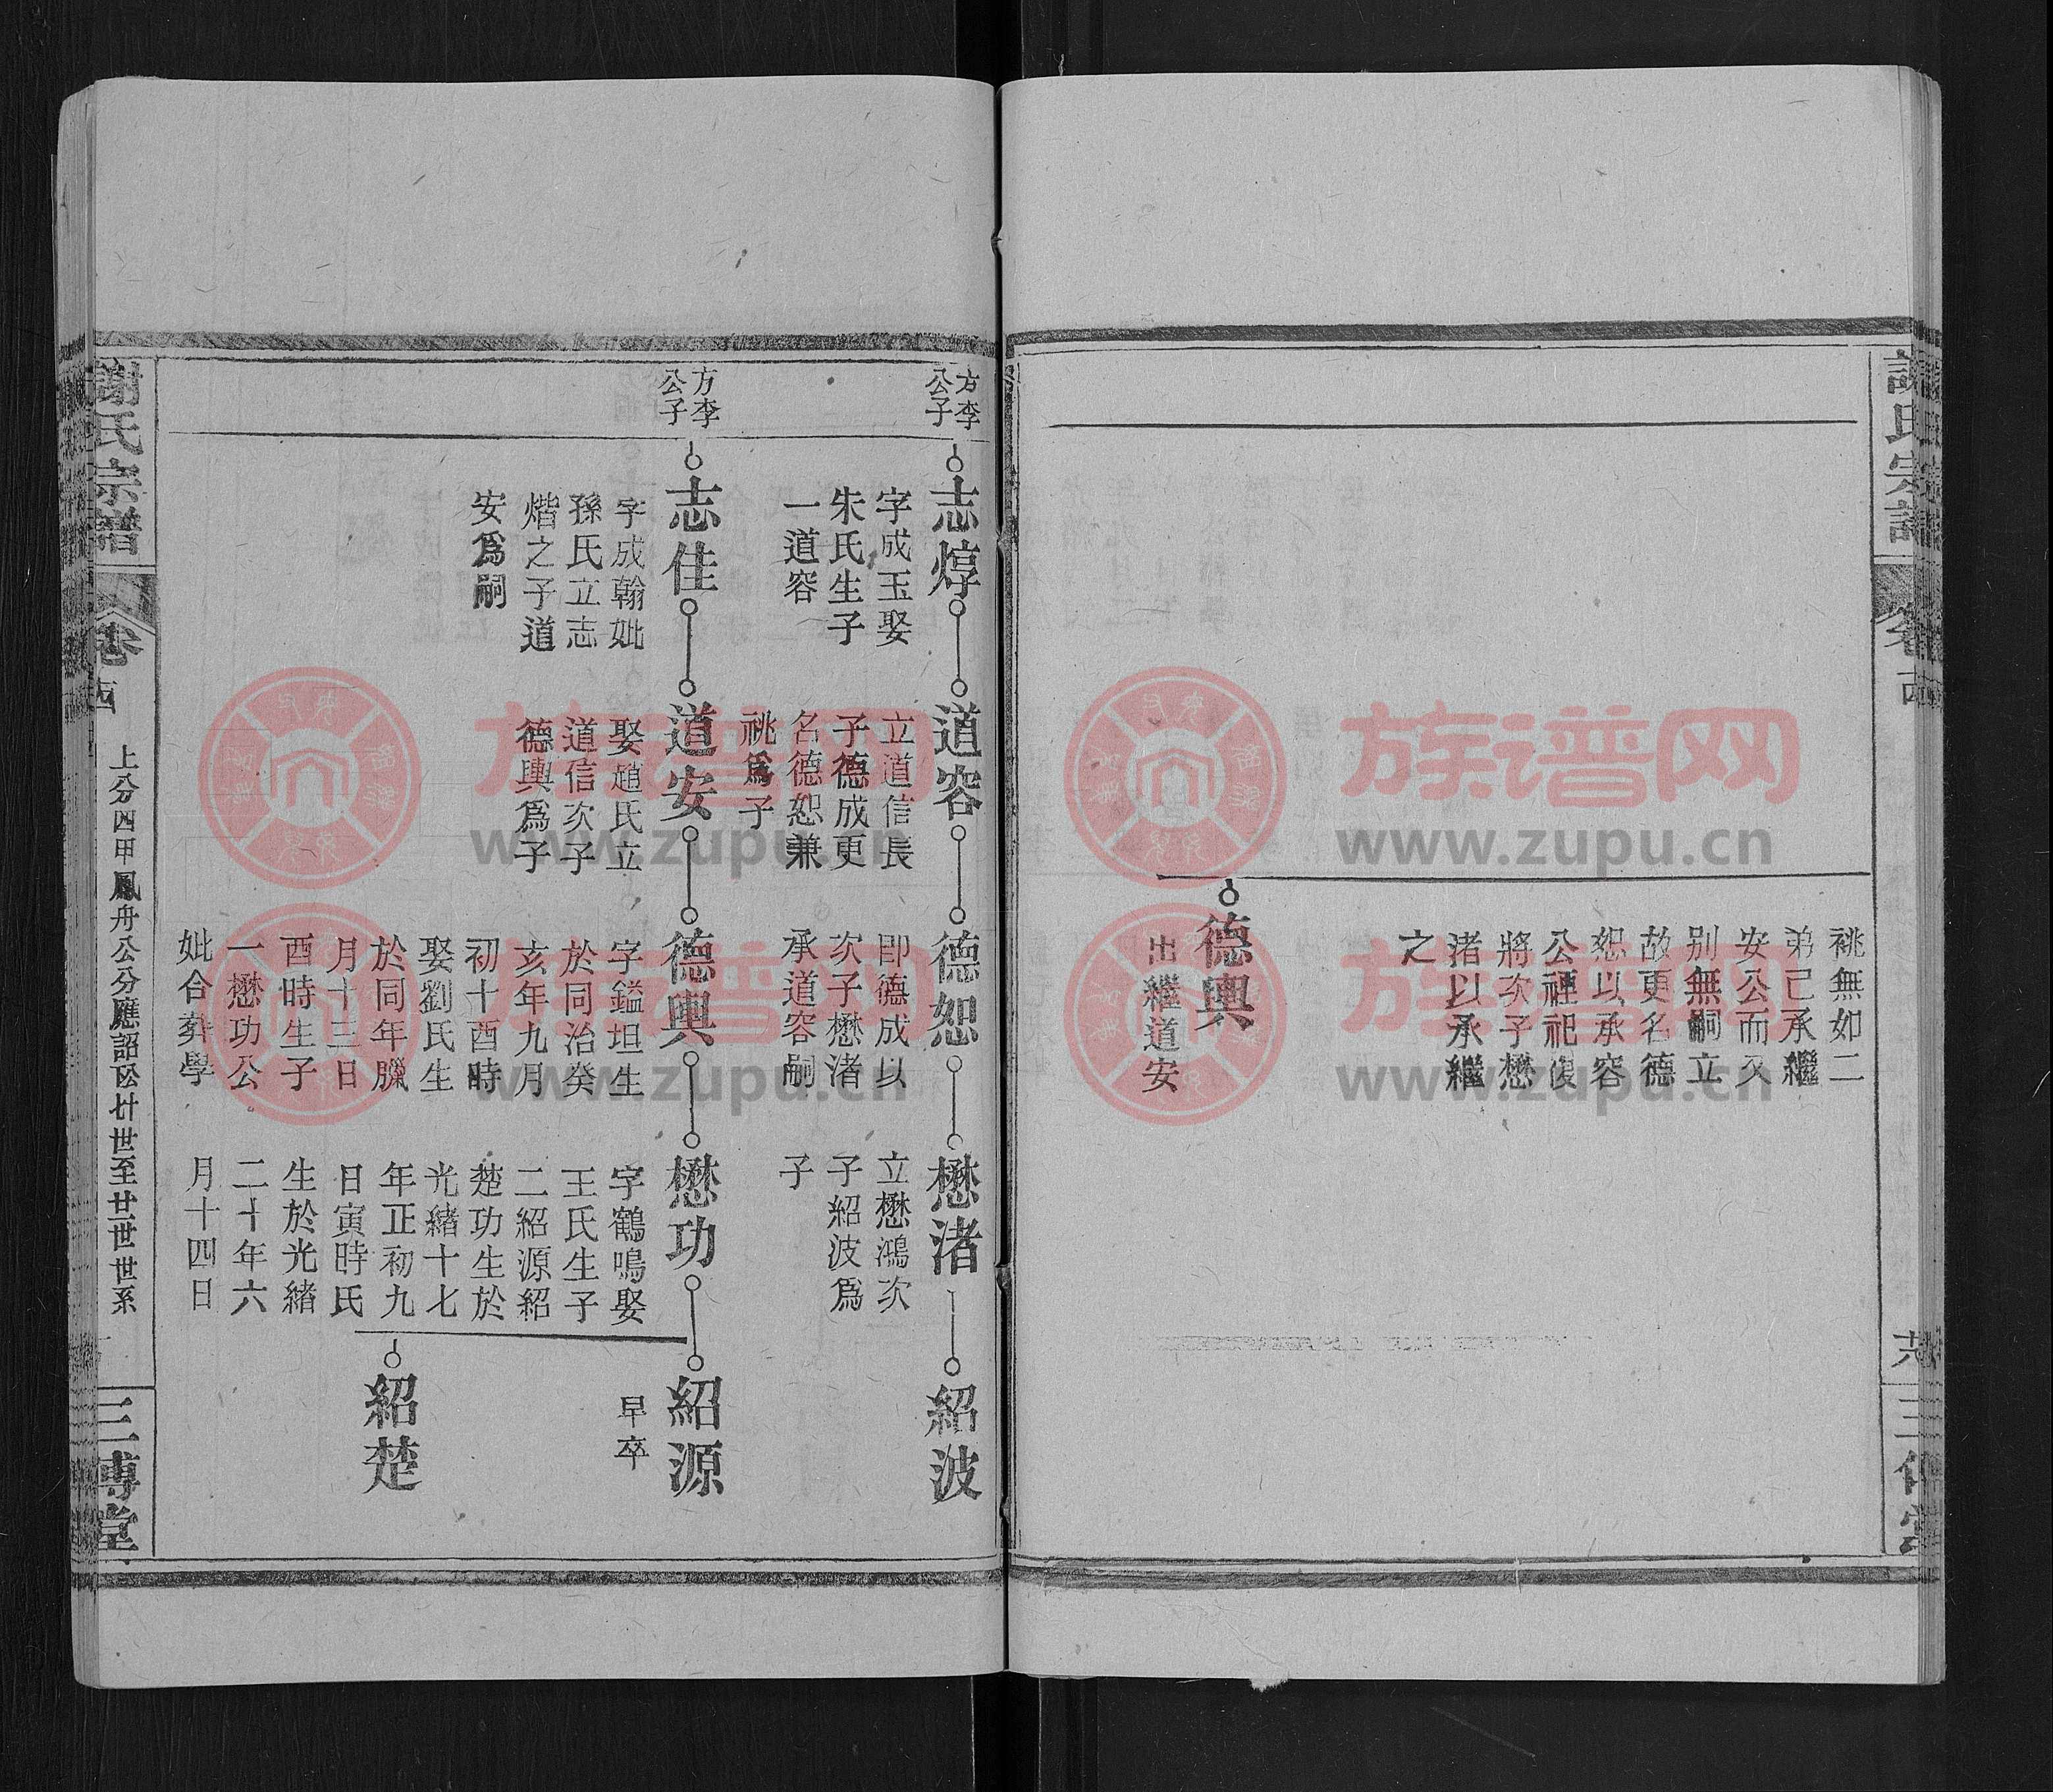 祧無如二
弟己承繼
安公而又
别無嗣立
故更名德
恕以承容
公禋祀復
將次子懋
渚以承繼
之
德輿
出繼道安
三傳堂
方李
公子
志焞
字成玉娶
朱氏生子
一道容
道容
立道信長
子德成更
名德恕兼
祧爲子
德恕
卽德成以
次子懋渚
承道容嗣
懋渚
立懋鴻次
子紹波爲
子
紹波
方李
公子
志佳
字成翰妣
孫氏立志
㷋之子道
安爲嗣
道安
娶趙氏立
道信次子
德輿爲子
德輿
字鎰坦生
於同治癸
亥年九月
初十酉時
娶劉氏生
於同年臘
月十三日
酉時生子
一懋功公
妣合葬學
懋功
字鶴鳴娶
王氏生子
二紹源紹
楚功生於
光緒十七
年正初九
日寅時氏
生於光緒
二十年六
月十四日
紹源
早卒
紹楚
謝氏宗譜
卷
上分四甲鳳舟公分應詔公廿世至廿世世系
三傳堂
族谱网
www.zupu.cn
族谱网
www.zupu.cn
族谱网
www.zupu.cn
族谱网
www.zupu.cn